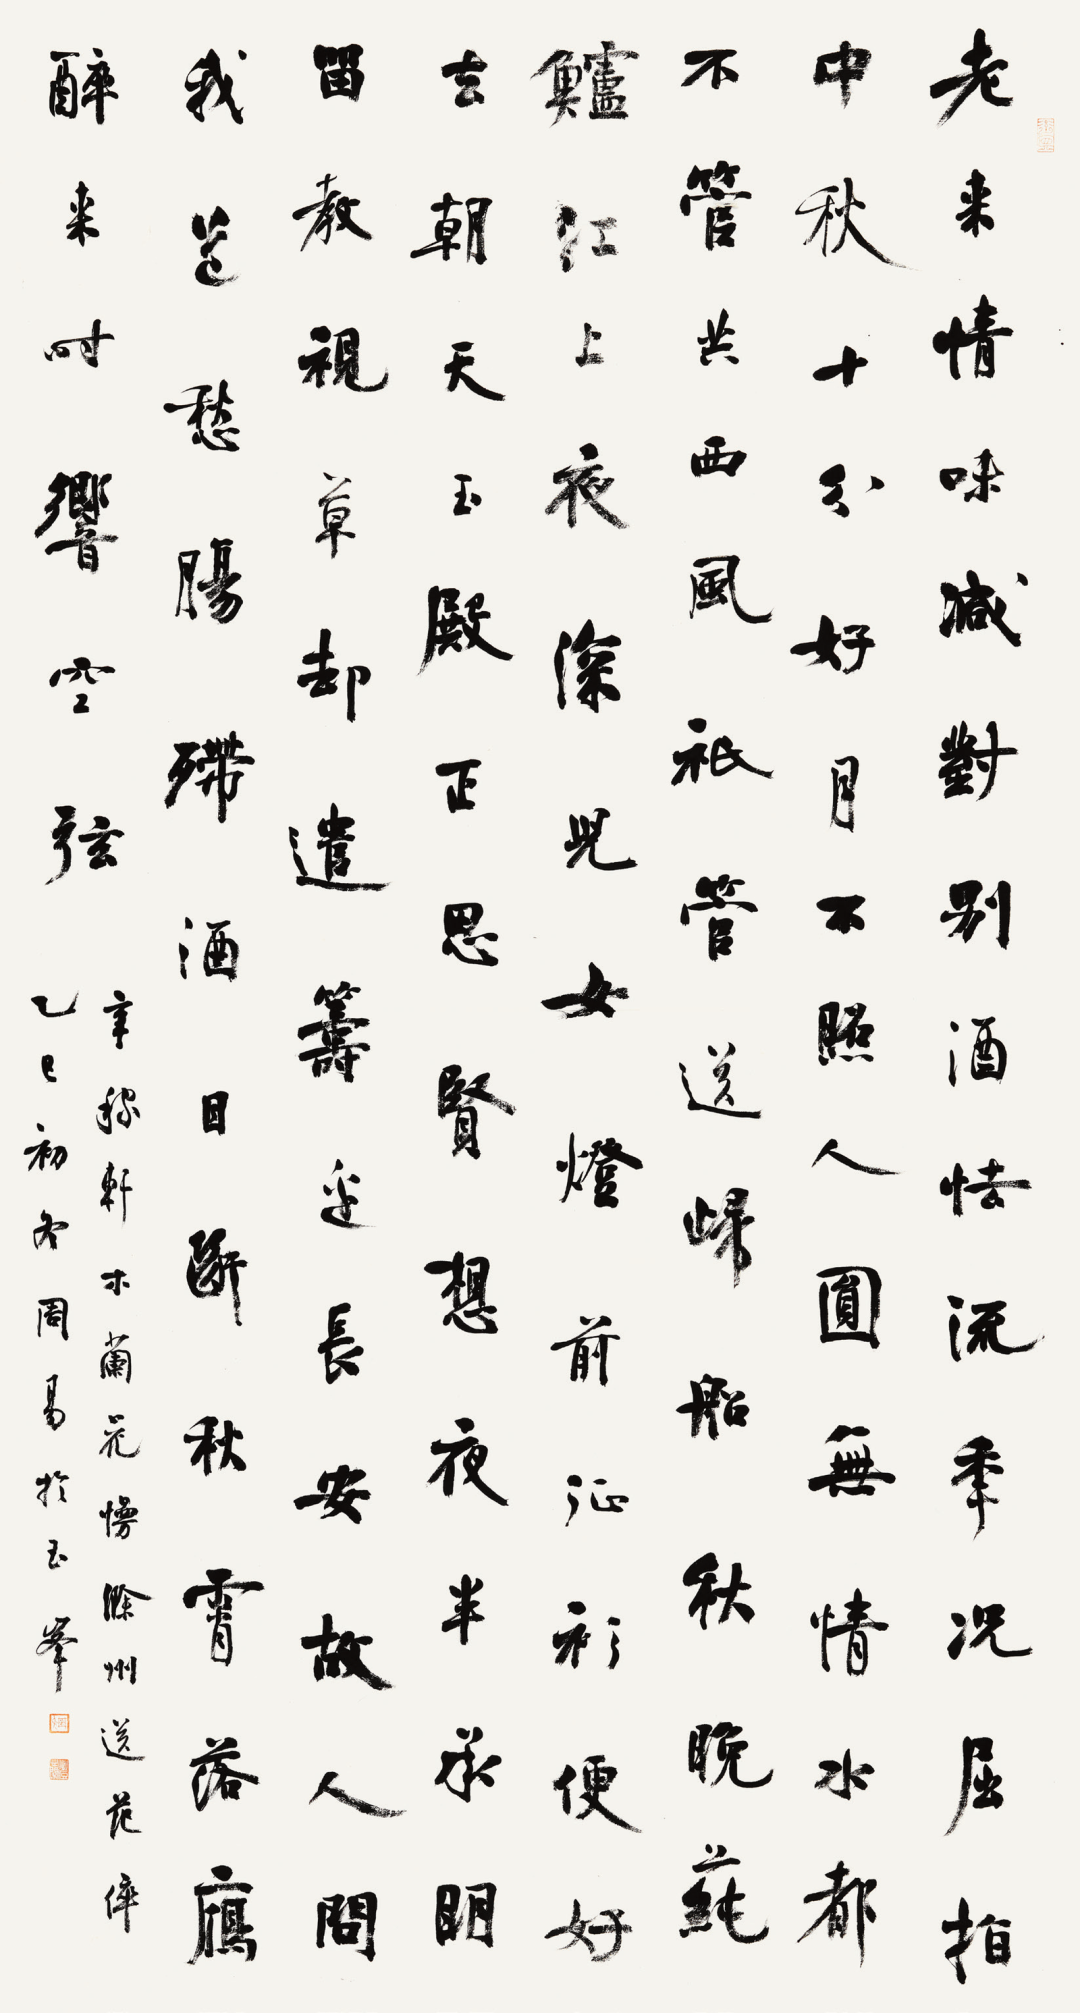 老来情味減對别酒怯流年况屈指
中秋十分好月不照人圓無情水都
不管共西風祇管送歸船秋晚蓴
鱸江上夜深兒女燈前征衫便好
去朝天玉殿正思賢想夜半承明
留教視草却遣籌邊長安故人問
我道愁腸殢酒目斷秋霄落鴈
醉来時響空弦
辛稼軒木蘭花慢滁州送范倅
乙巳初冬周易於玉峯